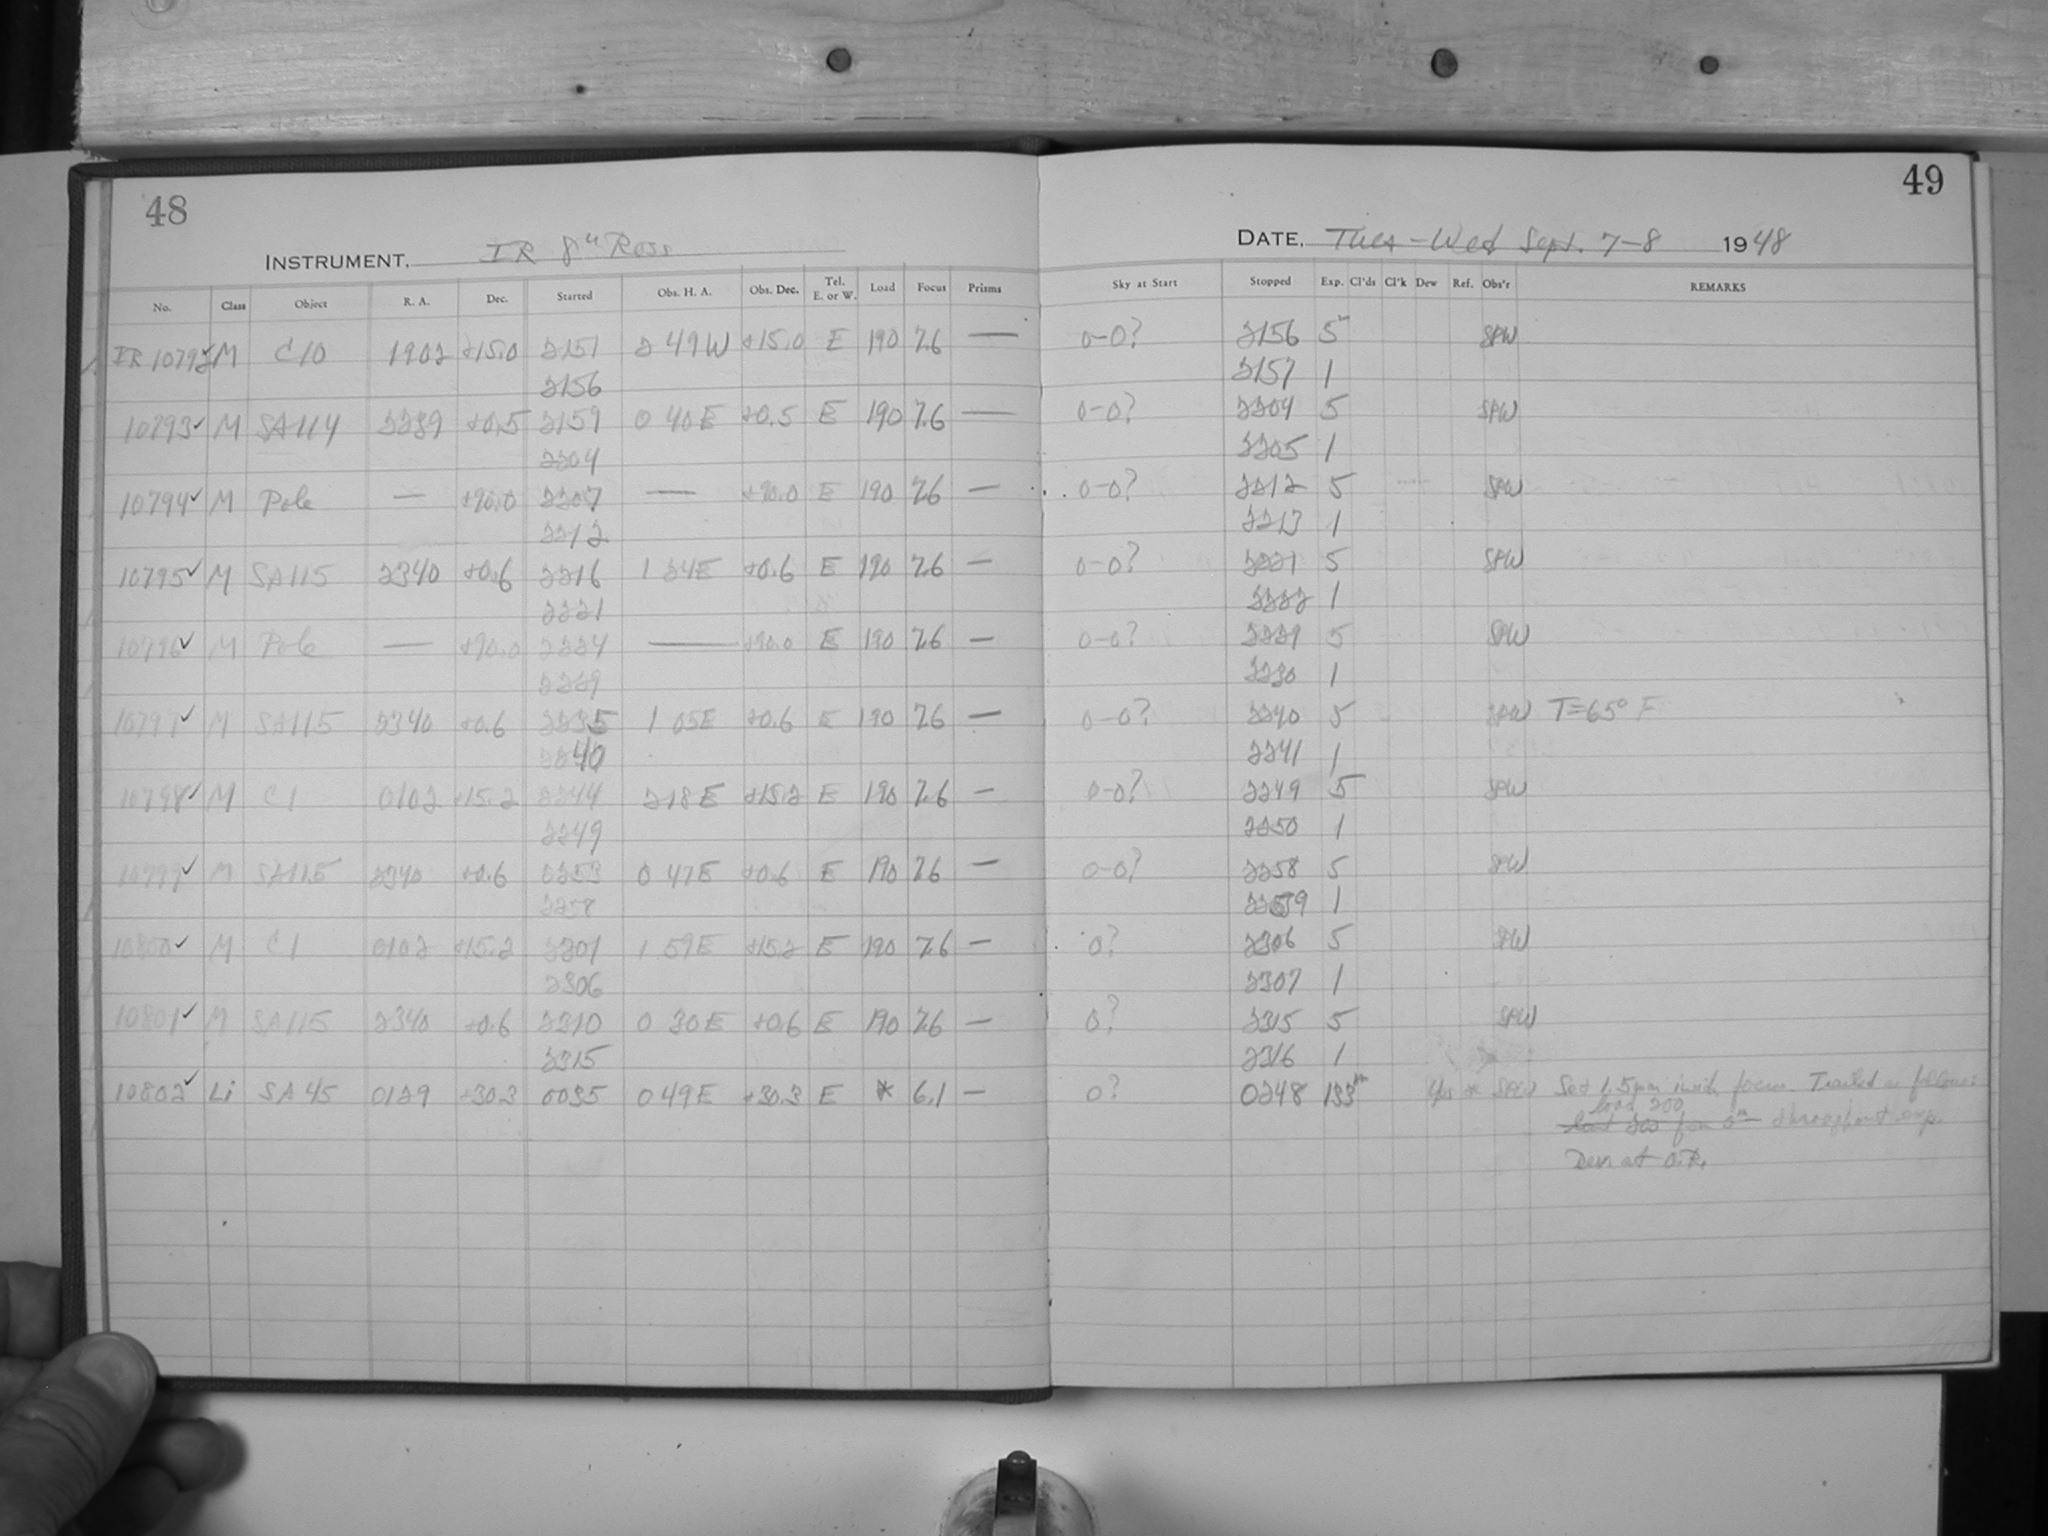 48
INSTRUMENT, IR 8" Ross
No. Class Object R. A. Dec. Started Obs. H. A. Obs. Dec. Tel. E. or W. Load Focus Prisms
IR 10792✓ M C10 1902 +15.0 2151 2 49W +15.0 E 190 7.6 —
2156
10793✓ M SA114 2239 +0.5 2159 0 40E +0.5 E 190 7.6 —
2204
10794✓ M Pole — +90.0 2207 — +90.0 E 190 7.6 —
2212
10795✓ M SA115 2340 +0.6 2216 1 24E +0.6 E 190 7.6 —
2221
10796✓ M Pole — +90.0 2224 — +90.0 E 190 7.6 —
2229
10797✓ M SA115 2340 +0.6 2235 1 05E +0.6 E 190 7.6 —
2240
10798✓ M C1 0102 +15.2 2244 2 18E +15.2 E 190 7.6 —
2249
10799✓ M SA115 2340 +0.6 2253 0 47E +0.6 E 190 7.6 —
2258
10800✓ M C1 0102 +15.2 2301 1 59E +15.2 E 190 7.6 —
2306
10801✓ M SA115 2340 +0.6 2310 0 30E +0.6 E 190 7.6 —
2315
10802✓ Li SA45 0129 +30.3 0035 0 49E +30.3 E * 6.1 —
49
DATE, Tues-Wed Sept. 7-8 1948
Sky at Start Stopped Exp. Cl'ds Cl'k Dew Ref. Obs'r REMARKS
0-0? 2156 5m SPW
2157 1
0-0? 2204 5 SPW
2205 1
0-0? 2212 5 SPW
2213 1
0-0? 2221 5 SPW
2222 1
0-0? 2229 5 SPW
2230 1
0-0? 2240 5 SPW T=65° F
2241 1
0-0? 2249 5 SPW
2250 1
0-0? 2258 5 SPW
2259 1
0? 2306 5 SPW
2307 1
0? 2315 5 SPW
2316 1
0? 0248 133m Yes * SPW Set 1.5mm inside focus. Trailed as follows:
load 200
load 200 from 0m throughout exp.
Dew at O.R.